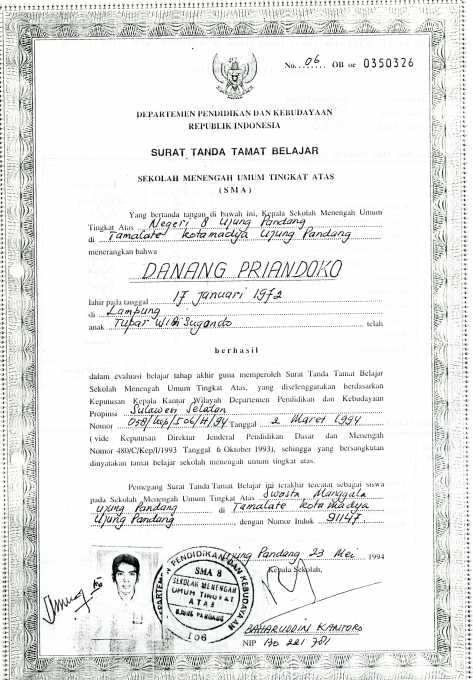 No. 06 OB oe 0350326
DEPARTEMEN PENDIDIKAN DAN KEBUDAYAAN
REPUBLIK INDONESIA
SURAT TANDA TAMAT BELAJAR
SEKOLAH MENENGAH UMUM TINGKAT ATAS
(SMA)
Yang bertanda tangan di bawah ini, Kepala Sekolah Menengah Umum
Tingkat Atas Negeri 8 Ujung Pandang
di Tamalate kotamadya Ujung Pandang
menerangkan bahwa
DANANG PRIANDOKO
lahir pada tanggal 17 Januari 1972
di Lampung
anak Tupar Widi Sugondo telah
berhasil
dalam evaluasi belajar tahap akhir guna memperoleh Surat Tanda Tamat Belajar
Sekolah Menengah Umum Tingkat Atas, yang diselenggarakan berdasarkan
Keputusan Kepala Kantor Wilayah Departemen Pendidikan dan Kebudayaan
Propinsi Sulawesi Selatan
Nomor 058/kep/I06/H/94 Tanggal 2 Maret 1994
( vide Keputusan Direktur Jenderal Pendidikan Dasar dan Menengah
Nomor 480/C/Kep/I/1993 Tanggal 6 Oktober 1993), sehingga yang bersangkutan
dinyatakan tamat belajar sekolah menengah umum tingkat atas.
Pemegang Surat Tanda Tamat Belajar ini terakhir tercatat sebagai siswa
pada Sekolah Menengah Umum Tingkat Atas Swasta Manggala
Ujung Pandang di Tamalate kotamadya
Ujung Pandang dengan Nomor Induk 91147.
Ujung Pandang 23 Mei 1994
Kepala Sekolah,
DEPARTEMEN PENDIDIKAN DAN KEBUDAYAAN
SMA 8
SEKOLAH MENENGAH
UMUM TINGKAT
ATAS
UJUNG PANDANG
I06
BAHARUDDIN KANTORO
NIP 130 221 781